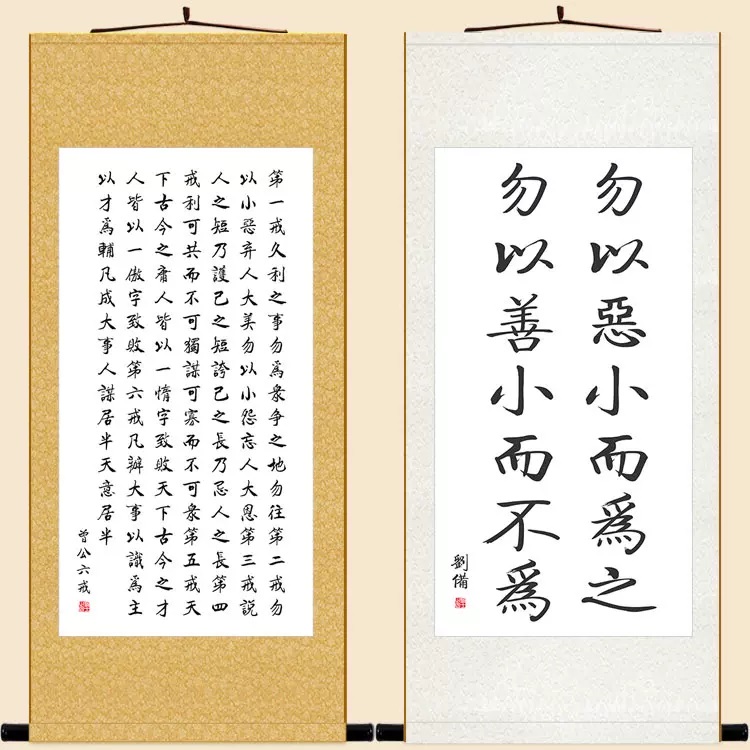 第一戒久利之事勿爲衆爭之地勿往第二戒勿
以小惡弃人大美勿以小怨忘人大恩第三戒説
人之短乃護己之短誇己之長乃忌人之長第四
戒利可共而不可獨謀可寡而不可衆第五戒天
下古今之庸人皆以一惰字致敗天下古今之才
人皆以一傲字致敗第六戒凡辦大事以識爲主
以才爲輔凡成大事人謀居半天意居半
曾公六戒
勿以惡小而爲之
勿以善小而不爲
劉備